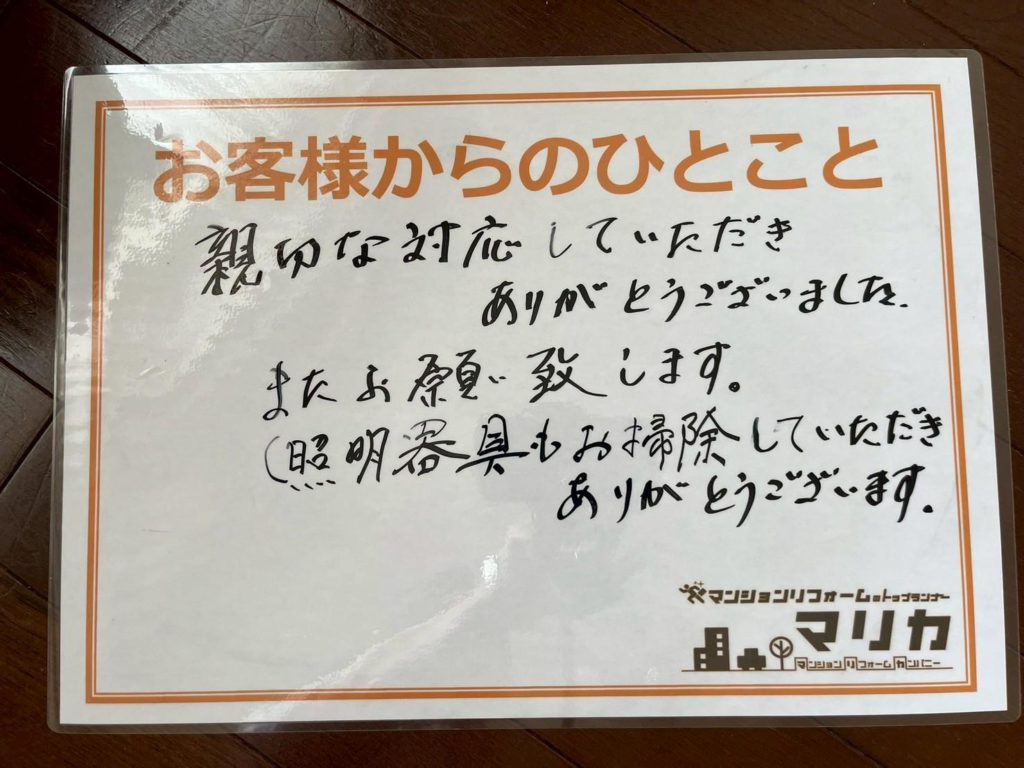 お客様からのひとこと
親切な対応していただき
ありがとうございました.
またお願い致します。
(照明器具もお掃除していただき
ありがとうございます.
マンションリフォームのトップランナー
マリカ
マンションリフォームカンパニー